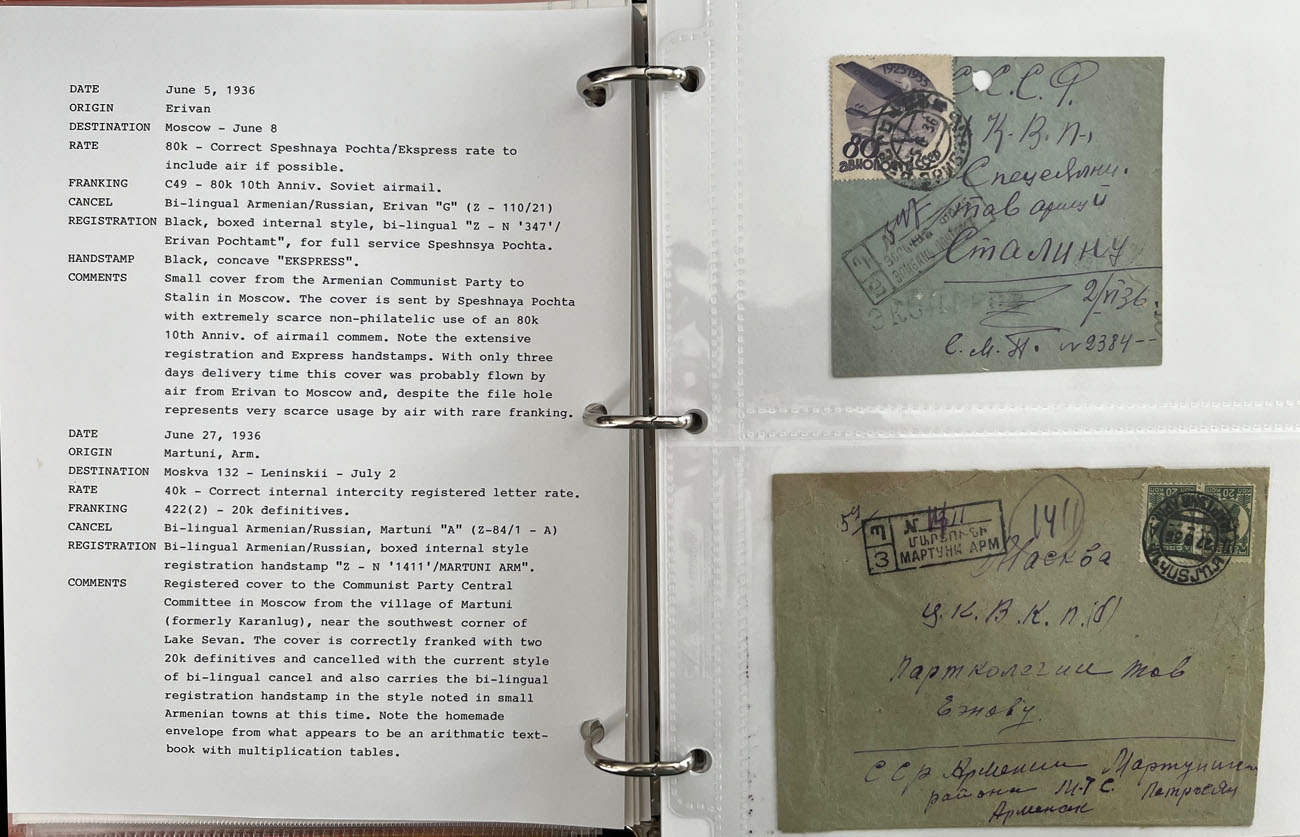 DATE June 5, 1936
ORIGIN Erivan
DESTINATION Moscow - June 8
RATE 80k - Correct Speshnaya Pochta/Ekspress rate to
include air if possible.
FRANKING C49 - 80k 10th Anniv. Soviet airmail.
CANCEL Bi-lingual Armenian/Russian, Erivan "G" (Z - 110/21)
REGISTRATION Black, boxed internal style, bi-lingual "Z - N '347'/
Erivan Pochtamt", for full service Speshnsya Pochta.
HANDSTAMP Black, concave "EKSPRESS".
COMMENTS Small cover from the Armenian Communist Party to
Stalin in Moscow. The cover is sent by Speshnaya Pochta
with extremely scarce non-philatelic use of an 80k
10th Anniv. of airmail commem. Note the extensive
registration and Express handstamps. With only three
days delivery time this cover was probably flown by
air from Erivan to Moscow and, despite the file hole
represents very scarce usage by air with rare franking.
DATE June 27, 1936
ORIGIN Martuni, Arm.
DESTINATION Moskva 132 - Leninskii - July 2
RATE 40k - Correct internal intercity registered letter rate.
FRANKING 422(2) - 20k definitives.
CANCEL Bi-lingual Armenian/Russian, Martuni "A" (Z-84/1 - A)
REGISTRATION Bi-lingual Armenian/Russian, boxed internal style
registration handstamp "Z - N '1411'/MARTUNI ARM".
COMMENTS Registered cover to the Communist Party Central
Committee in Moscow from the village of Martuni
(formerly Karanlug), near the southwest corner of
Lake Sevan. The cover is correctly franked with two
20k definitives and cancelled with the current style
of bi-lingual cancel and also carries the bi-lingual
registration handstamp in the style noted in small
Armenian towns at this time. Note the homemade
envelope from what appears to be an arithmatic text-
book with multiplication tables.
1923 1935
80
К.В.П.,
Сталину
2/VI 36
С.М.П. № 2384--
20 20
№ 1411
ՄԱՐՏՈՒՆԻ
З МАРТУНК АРМ
1411
Масква
Ц.К.В.К.П.(б)
Партколегии тов
Ежову.
ССР Армении
района М.Т.С. Петросян
Арменак